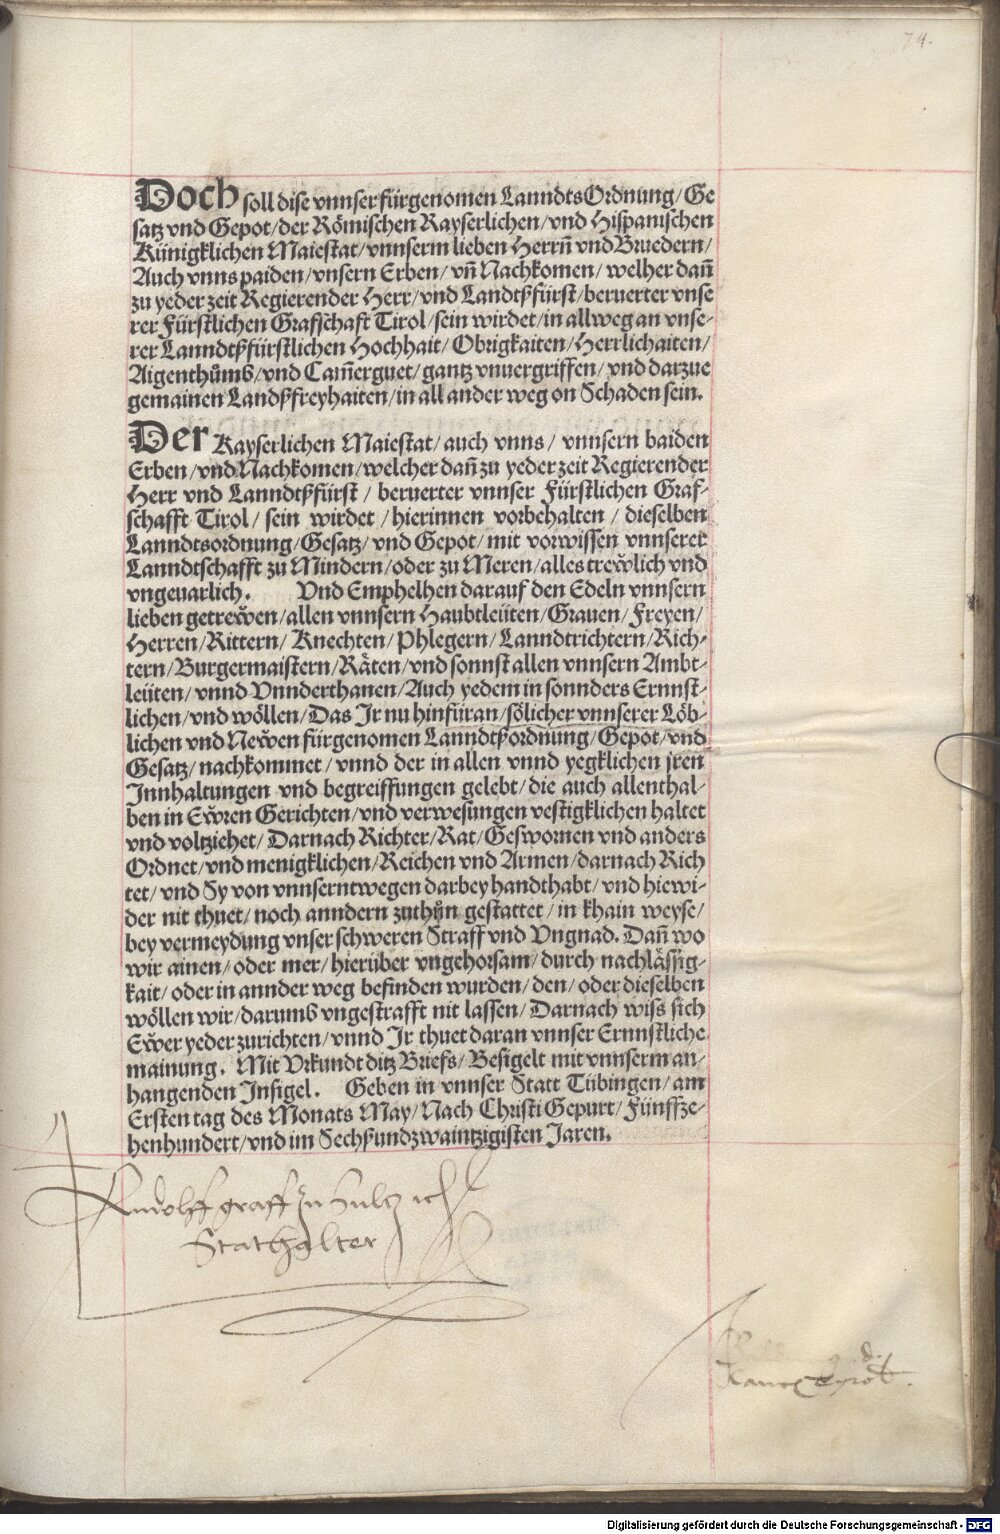 74.
Doch soll dise vnnser fürgenomen LanndtsOrdnung/ Ge
satz vnd Gepot/ der Römischen Kayserlichen/ vnd Hispanischen
Künigklichen Maiestat/ vnnserm lieben Herrn̄ vnd Bruedern/
Auch vnns paiden/ vnsern Erben/ vn̄ Nachkomen/ welher dan̄
zu yeder zeit Regierender Herr/ vnd Landtßfürst/ beruerter vnse
rer Fürstlichen Grafschaft Tirol/ sein wirdet/ in allweg an vnse-
rer Lanndtßfürstlichen Hochhait/ Obrigkaiten/ Herrlichaiten/
Aigenthůmb/ vnd Cam̄erguet/ gantz vnuergriffen/ vnd darzue
gemainen Landßfreyhaiten/ in all ander weg on Schaden sein.
Der Kayserlichen Maiestat/ auch vnns/ vnnsern baiden
Erben/ vnd Nachkomen/ welcher dan̄ zu yeder zeit Regierender
Herr vnd Lanndtßfürst/ beruerter vnnser Fürstlichen Graf-
schafft Tirol/ sein wirdet/ hierinnen vorbehalten/ dieselben
Lanndtsordnung/ Gesatz/ vnd Gepot/ mit vorwissen vnnserer
Lanndtschafft zu Mindern/ oder zu Meren/ alles treẘlich vnd
vngeuarlich. Vnd Emphelhen darauf den Edeln vnnsern
lieben getreẘen/ allen vnnsern Haubtleüten/ Grauen/ Freyen/
Herren/ Rittern/ Knechten/ Phlegern/ Lanndtrichtern/ Rich-
tern/ Burgermaistern/ Räten/ vnd sonnst allen vnnsern Ambt-
leüten/ vnnd Vnnderthanen/ Auch yedem in sonnders Ernnst-
lichen/ vnd wöllen/ Das Ir nu hinfüran/ sölicher vnnserer Löb-
lichen vnd Neẘen fürgenomen Lanndtßordnung/ Gepot/ vnd
Gesatz/ nachkommet/ vnnd der in allen vnnd yegklichen jren
Innhaltungen vnd begreiffungen gelebt/ die auch allenthal-
ben in Eẘren Gerichten/ vnd verwesungen vestigklichen haltet
vnd voltziehet/ Darnach Richter/ Rat/ Geswornen vnd anders
Ordnet/ vnd menigklichen/ Reichen vnd Armen/ darnach Rich
tet/ vnd Sy von vnnserntwegen darbey handthabt/ vnd hiewi-
der nit thuet/ noch anndern zuthůn gestattet/ in khain weyse/
bey vermeydung vnser schweren Straff vnd Vngnad. Dan̄ wo
wir ainen/ oder mer/ hierüber vngehorsam/ durch nachlässig-
kait/ oder in annder weg befinden wurden/ den/ oder dieselben
wöllen wir/ darumb vngestrafft nit lassen/ Darnach wiss sich
Eẘer yeder zurichten/ vnnd Ir thuet daran vnnser Ernnstliche
mainung. Mit Vrkundt ditz Briefs/ Besigelt mit vnnserm an-
hangenden Insigel. Geben in vnnser Statt Tübingen/ am
Ersten tag des Monats May/ Nach Christi Gepurt/ Fünffze-
henhundert/ vnd im Sechßundzwaintzigisten Jaren.
Rudolff graff zu Sulcz
Stathalter
Digitalisierung gefördert durch die Deutsche Forschungsgemeinschaft - DFG